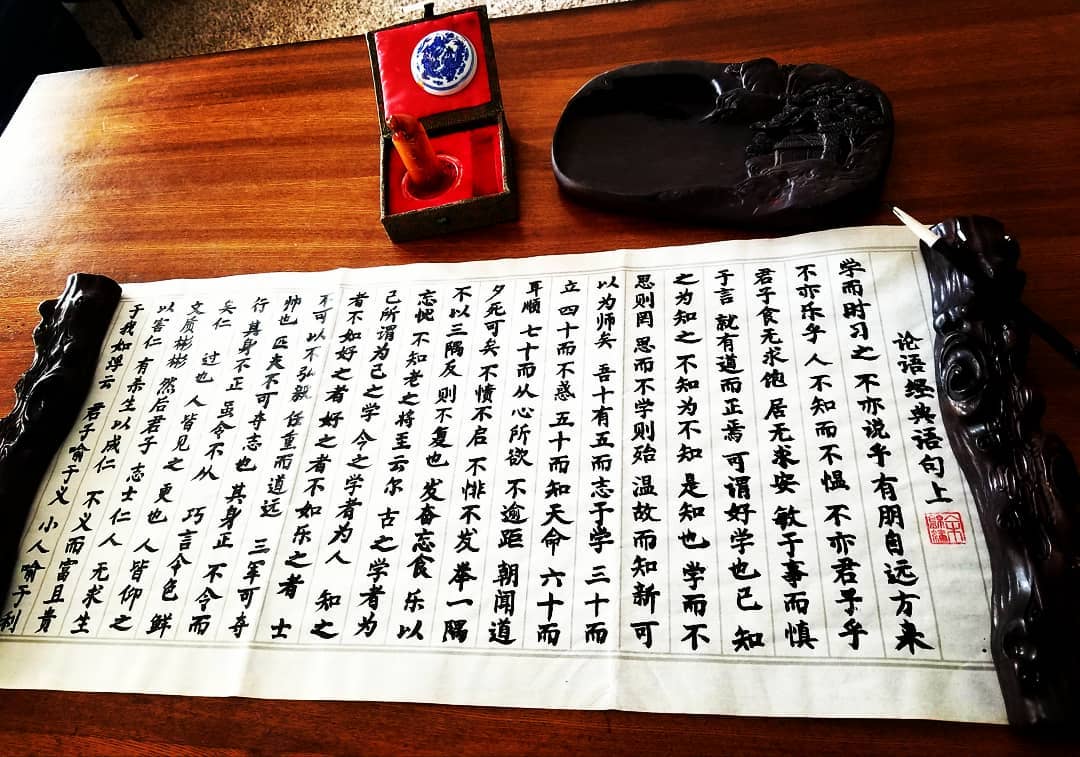 论语经典语句上
学而时习之 不亦说乎有朋自远方来
不亦乐乎 人不知而不愠 不亦君子乎
君子食无求饱 居无求安 敏于事而慎
于言 就有道而正焉 可谓好学也已 知
之为知之 不知为不知 是知也 学而不
思则罔 思而不学则殆 温故而知新 可
以为师矣 吾十有五而志于学 三十而
立 四十而不惑 五十而知天命 六十而
耳顺 七十而从心所欲 不逾距 朝闻道
夕死可矣 不愤不启 不悱不发 举一隅
不以三隅反 则不复也 发奋忘食 乐以
忘忧 不知老之将至云尔 古之学者为
己所谓为己之学 今之学者为人 知之
者不如好之者 好之者不如乐之者 士
不可以不弘毅 任重而道远 三军可夺
帅也 匹夫不可夺志也 其身正 不令而
行 其身不正 虽令不从 巧言令色 鲜
矣仁 过也 人皆见之 更也 人皆仰之
文质彬彬 然后君子 志士仁人 无求生
以害仁 有杀生以成仁 不义而富且贵
于我如浮云 君子喻于义 小人喻于利